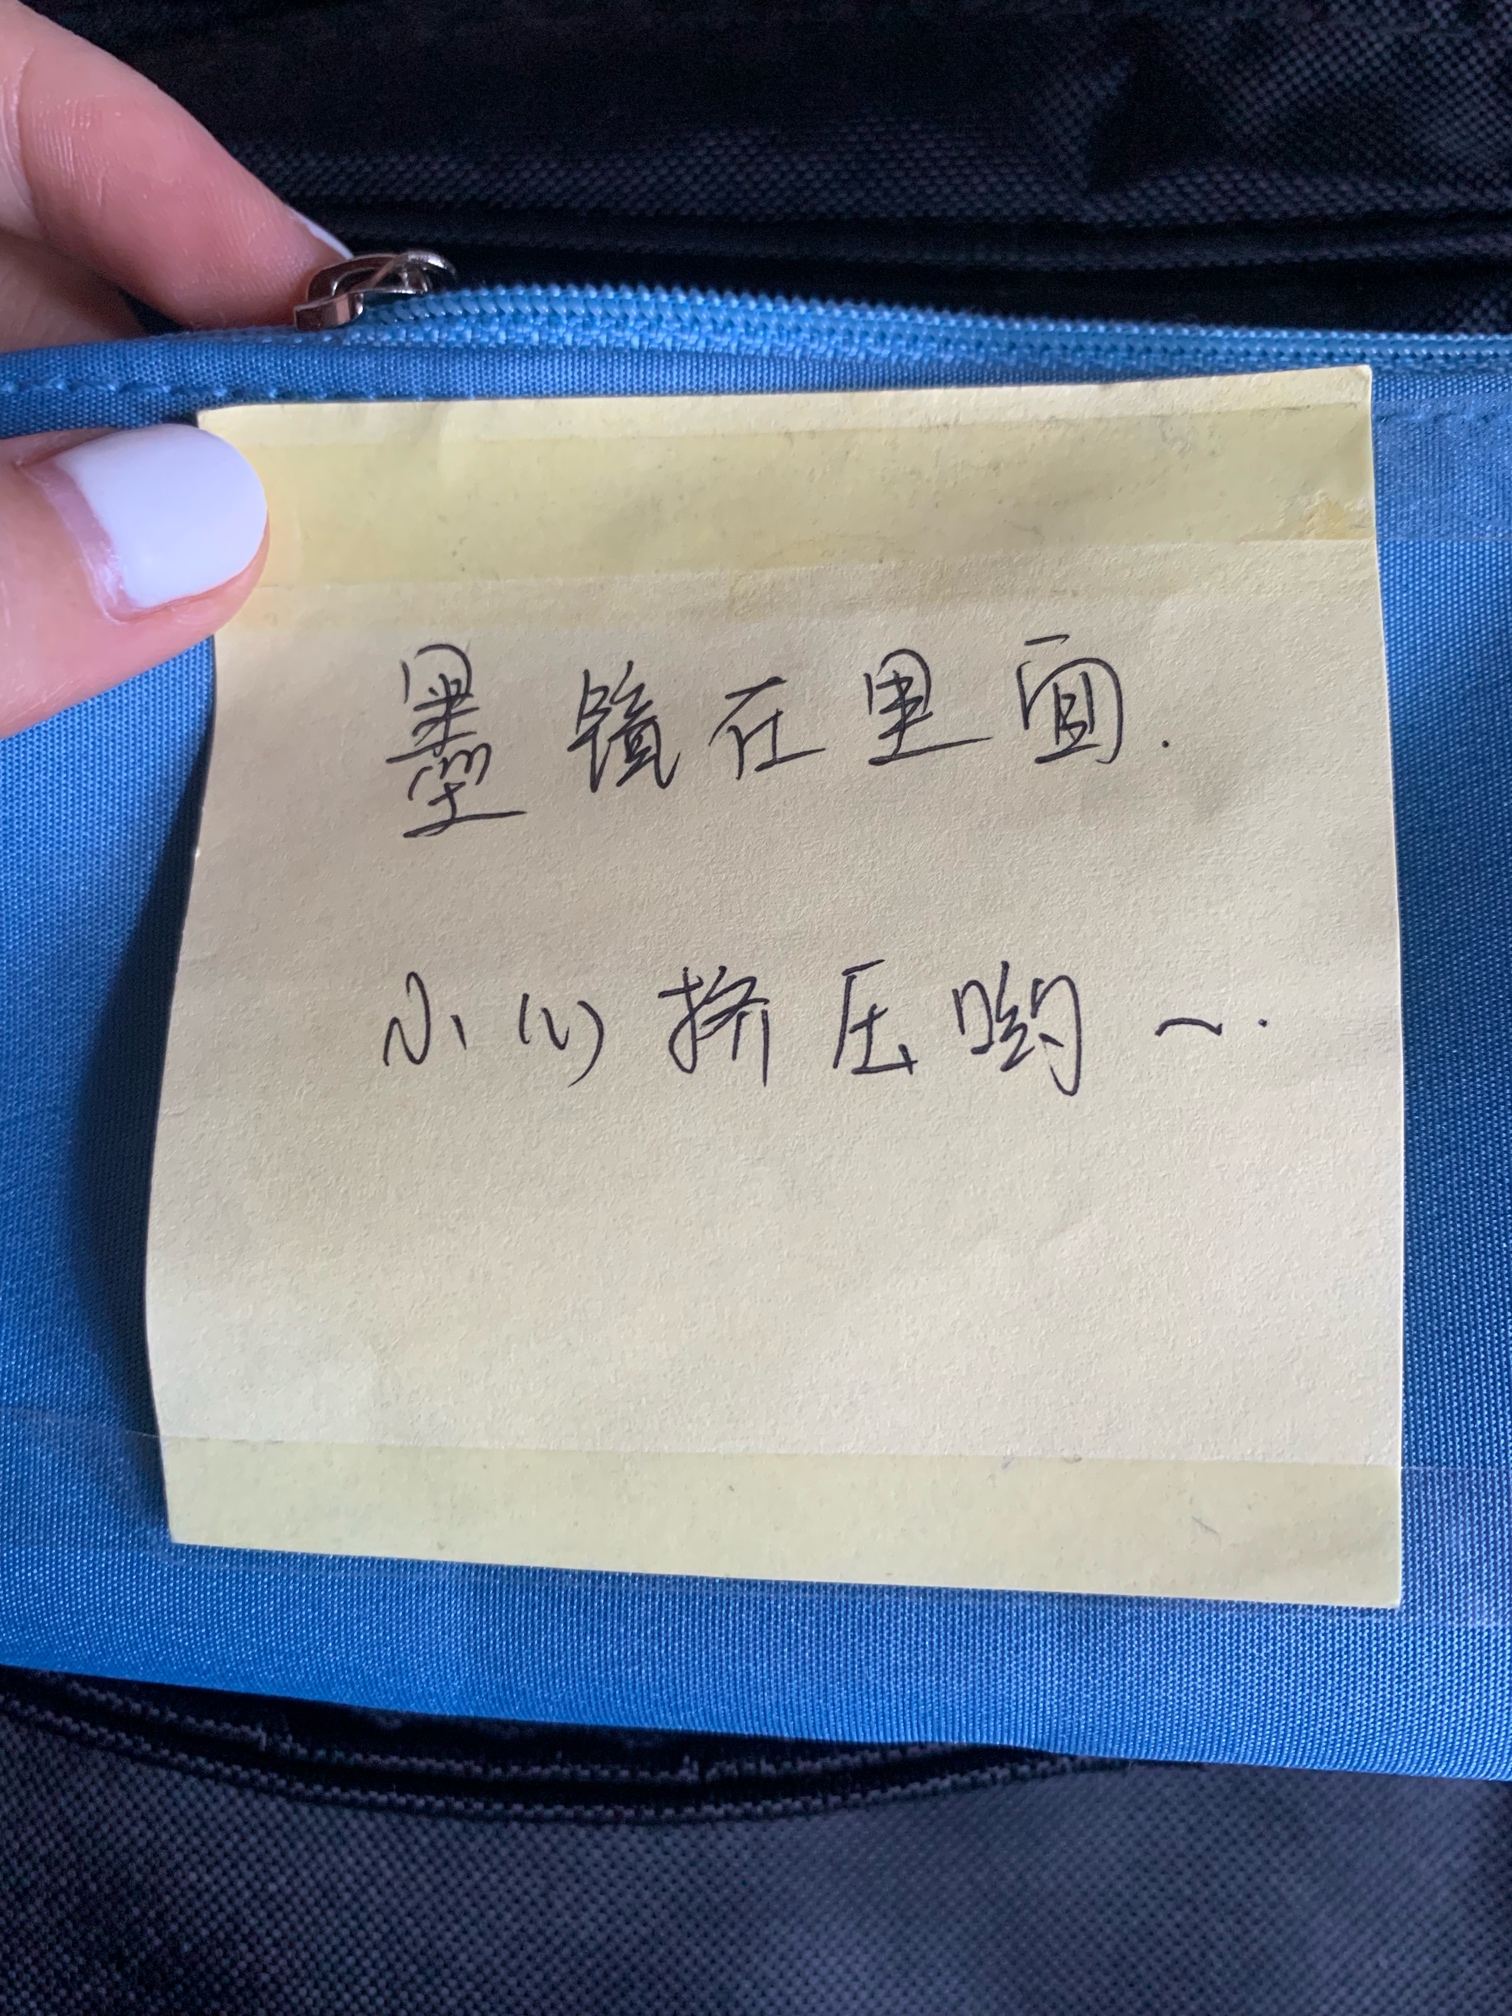 墨镜在里面.
小心挤压哟~.